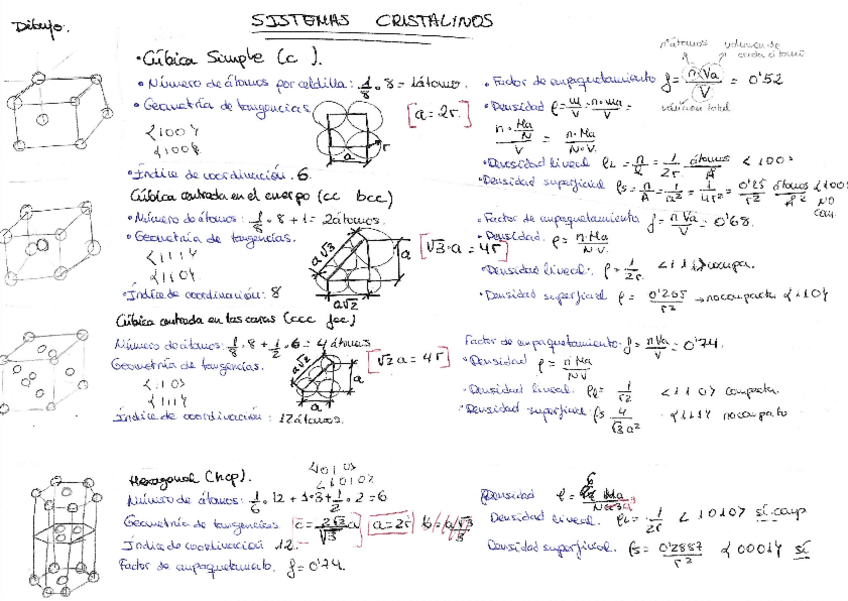 Dibujo.
SISTEMAS CRISTALINOS
• Cúbica Simple (c ).
• Número de átomos por celdilla: 1/8 · 8 = 1 átomo.
• Geometría de tangencias
[a = 2r]
<100>
{100}
a
r
• Índice de coordinación. 6.
nºátomos volumen de cada átomo
• Factor de empaquetamiento f = n·Va/V = 0'52
volumen total
• Densidad ρ = m/V = n·ma/V =
n·Ma/N / V = n·Ma/N·V.
• Densidad lineal ρL = n/L = 1/2r átomos/Å <100>
• Densidad superficial ρs = n/A = 1/a² = 1/4r² = 0'25/r² átomos/Å² {100} NO com.
Cúbica centrada en el cuerpo (cc bcc)
• Número de átomos: 1/8 · 8 + 1 = 2 átomos.
• Geometría de tangencias.
[√3·a = 4r]
<111>
{110}
a√3
a
a√2
• Índice de coordinación: 8
• Factor de empaquetamiento f = n·Va/V = 0'68.
• Densidad. ρ = n·Ma/N·V.
• Densidad lineal: ρ = 1/2r <111> compa.
• Densidad superficial ρ = 0'265/r² → no compacta {110}
Cúbica centrada en las caras (ccc fcc)
Número de átomos: 1/8 · 8 + 1/2 · 6 = 4 átomos
Geometría de tangencias.
[√2 a = 4r]
<110>
{111}
a√2
a
a
Índice de coordinación: 12 átomos.
Factor de empaquetamiento: f = n·Va/V = 0'74.
• Densidad ρ = n·Ma/N·V
• Densidad lineal: ρL = 1/r2 <110> compacta.
• Densidad superficial ρs 4/√3a² {111} no compacto
Hexagonal (hcp).
<1010>
Número de átomos: 1/6 · 12 + 1·3 + 1/2 · 2 = 6
Geometría de tangencias [c = 2√2/√3 a] [a = 2r]
Índice de coordinación 12.
Factor de empaquetamiento. f = 0'74.
Densidad ρ = 6 Ma
Densidad lineal. ρL = 1/2r <1010> sí comp
Densidad superficial. ρs = 0'2887/r² {0001} sí